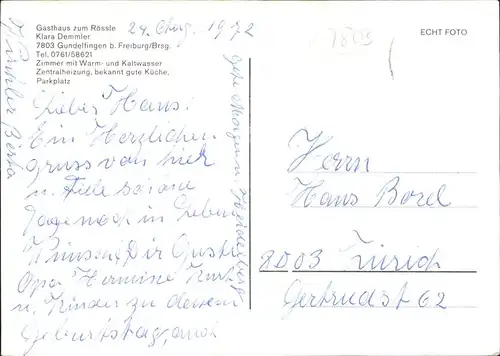 Gasthaus zum Rössle
Klara Demmler
7803 Gundelfingen b. Freiburg/Brsg.
Tel. 0761/58621
Zimmer mit Warm- und Kaltwasser
Zentralheizung, bekannt gute Küche,
Parkplatz
24. Aug. 1972
ECHT FOTO
7803
Lieber Hans!
Ein Herzlichen
gruss von hier
u. viele schöne
Tage noch in Leben
Wünschen Dir Gusti
Opa Hermine Kurt
u. Kinder zu deinem
Geburtstag, auch
Berta
Morgen Heidelberg
Herrn
Hans Borel
8003 Zürich
Gertrudst 62